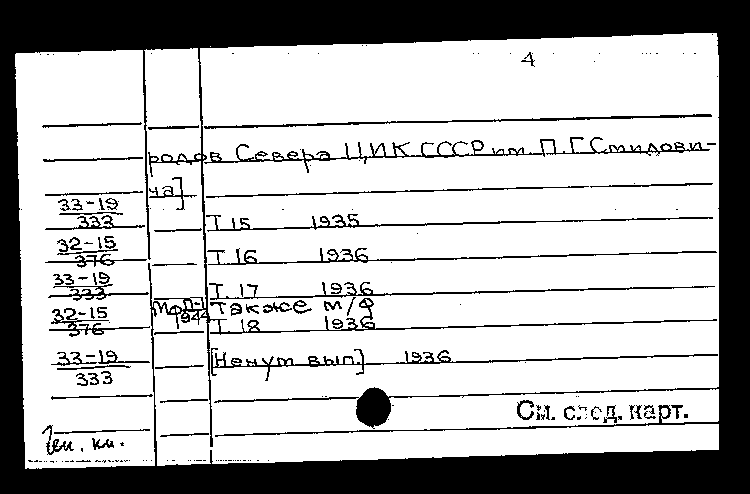 4
родов Севера ЦИК СССР им. П.Г Смидови-
ча]
33-19
333 Т 15 1935
32-15
376 Т. 16 1936
33-19
333 Т. 17 1936
Мф П-1 Также м/ф
32-15 1944
376 Т. 18 1936
33-19 [Ненум вып] 1936
333
См. след. карт.
Ген. кн.